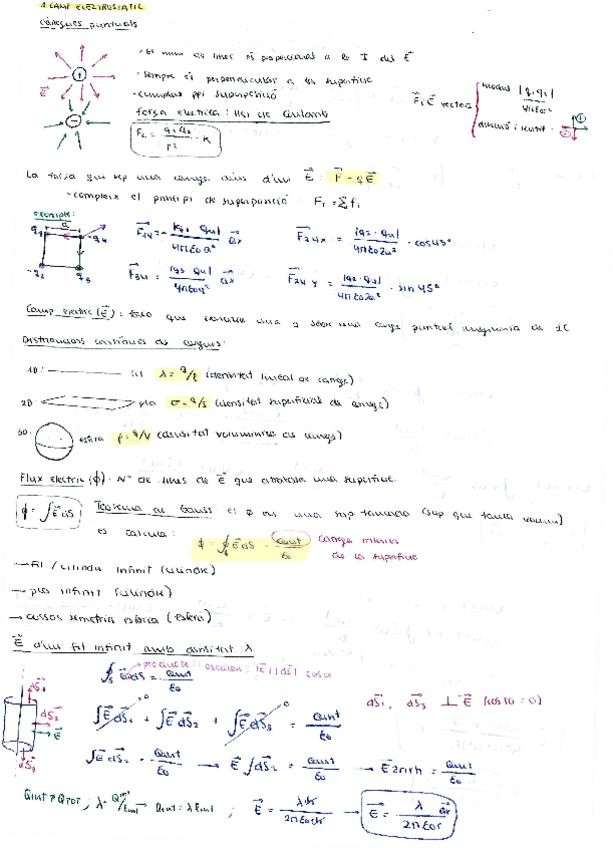 1 CAMP ELECTROSTÀTIC
càrregues puntuals
· El num de línies és proporcional a la I del E⃗
· Sempre és perpendicular a la superfície
· compleix ppi superposició
força elèctrica: llei de Coulomb
F⃗, E⃗ vectors
mòdul |q₁q₂| / 4πε₀r²
F₂ = q₁q₂ / r² · K
La força que rep una càrrega dins d'un E⃗: F⃗ = qE⃗
- compleix el principi de superposició: F₁ = Σfᵢ
exemple:
a
q₁ -q₄
-q₂ q₃
F⃗₁₄ = - |q₁·q₄| / 4πε₀a² a⃗x F⃗₂₄x = |q₂·q₄| / 4πε₀2a² · cos45°
F⃗₃₄ = |q₃·q₄| / 4πε₀a² a⃗x F⃗₂₄y = |q₂·q₄| / 4πε₀2a² · sin 45°
Camp elèctric (E⃗): força que una càrrega puntual de 1C
Distribucions contínues de càrregues:
1D: fil λ = q/ℓ (densitat lineal de càrrega)
2D: pla σ = q/s (densitat superficial de càrrega)
3D: esfera ρ = q/V (densitat volumètrica de càrrega)
Flux elèctric (ϕ): Nº de línies de E⃗ que atravessa una superfície.
ϕ = ∫E⃗dS Teorema de Gauss: el ϕ en una sup tancada (sup que tanca volum)
es calcula:
ϕ = ∮E⃗dS = Qint / ε₀ càrrega interior de la superfície
→ Fil / cilindre infinit (cilindre)
→ pla infinit (cilindre)
→ cossos simetria esfèrica (esfera)
E⃗ d'un fil infinit amb densitat λ
producte escalar: |E⃗||dS⃗| cosα
∮E⃗dS⃗ = Qint / ε₀
dS⃗₁, dS⃗₃ ⊥ E⃗ (cos90 = 0)
dS⃗₁
dS⃗₂
E⃗
dS⃗₃
∫E⃗dS⃗₁ + ∫E⃗dS⃗₂ + ∫E⃗dS⃗₃ = Qint / ε₀
∫E⃗dS⃗₂ = Qint / ε₀ → E⃗∫dS⃗₂ = Qint / ε₀ → E⃗2πrh = Qint / ε₀
Qint ≠ QTOT; λ = Qint/ℓint → Qint = λℓint; E⃗ = λh / 2πε₀rh → E⃗ = λ / 2πε₀r a⃗r